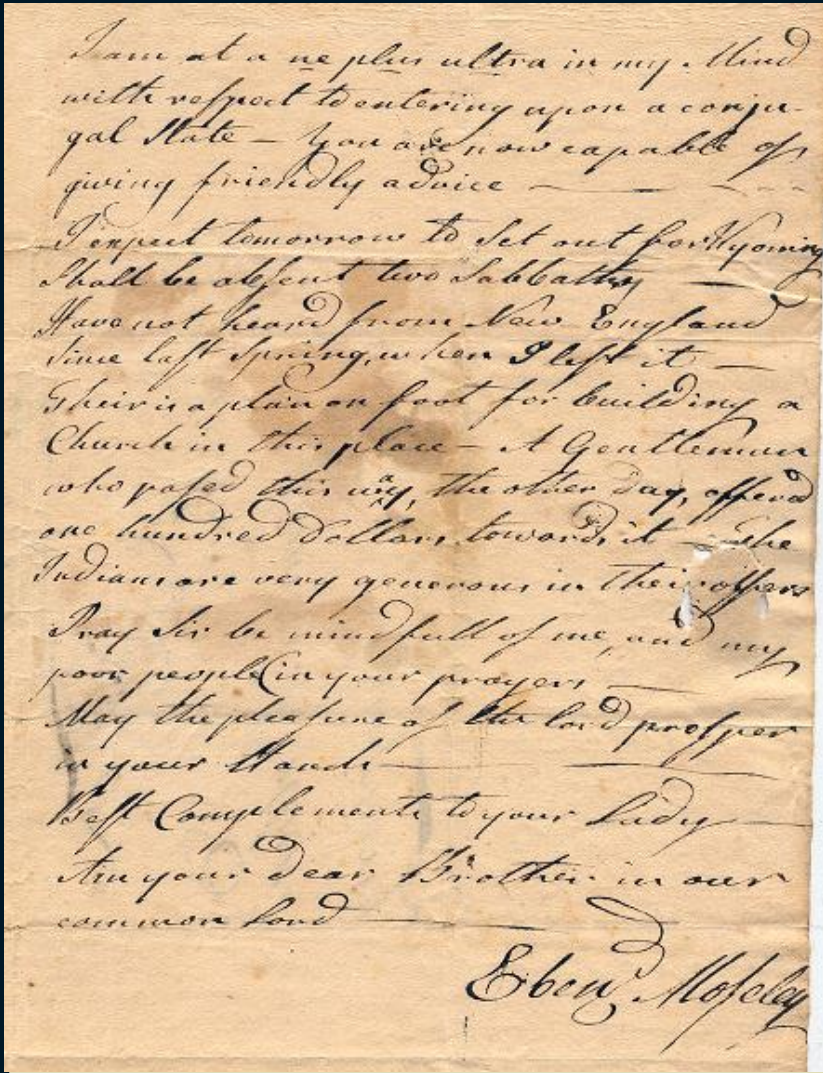 I am at a ne plus ultra in my Mind
with respect to entering upon a conju-
gal State — You are now capable of
giving friendly advice —
I expect tomorrow to set out for Wyoming
Shall be absent two Sabbaths —
Have not heard from New England
since last Spring, when I left it —
Their is a plan on foot for building a
Church in this place — A Gentleman
who passed this way, the other Day, offered
one hundred Dollars towards it — The
Indians are very generous in their offers
Pray Sir be mindfull of me, and my
poor people in your prayers —
May the pleasure of the Lord prosper
in your Hands —
Best Complements to your Lady —
Am your Dear Brother in our
common Lord —
Ebenr Moseley